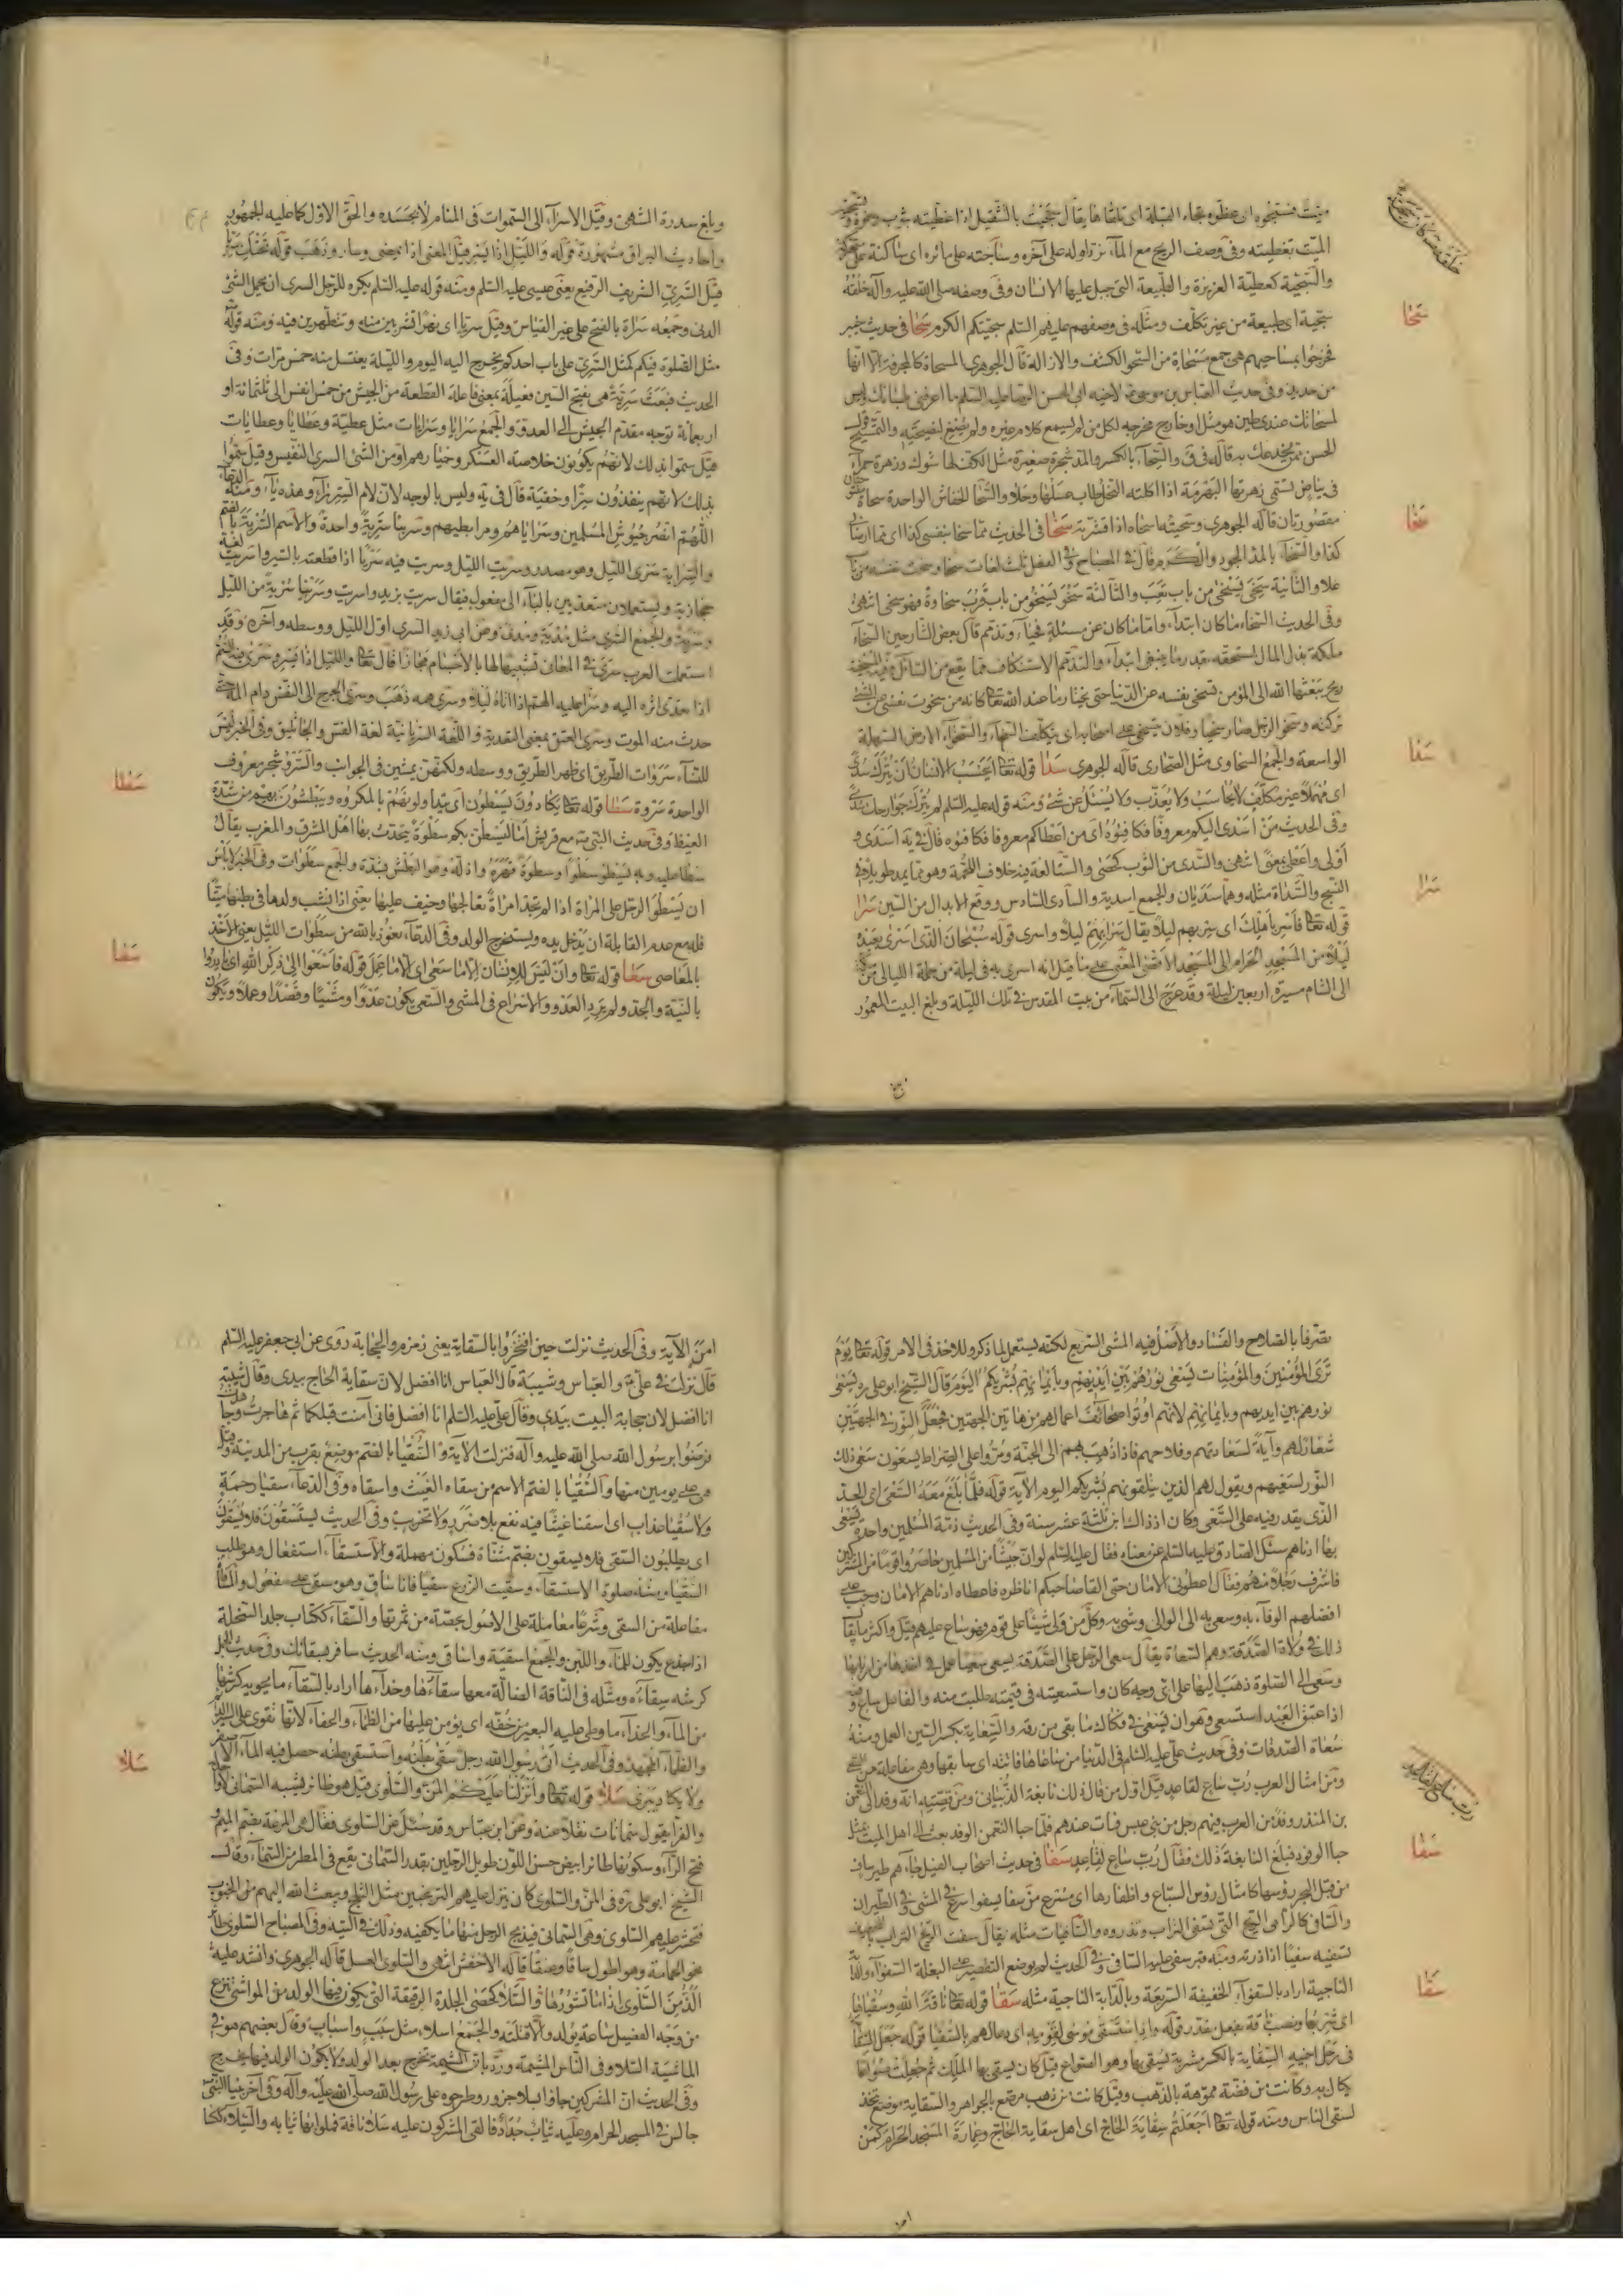 الميت بتغطيته وفى وصف الريح مع الماء ترد اوله على آخره وساجيته على مائره اى ساكنة
والسجية كعطية الغريزة والطبيعة التى جبل عليها الانسان وفى وصفه صلى الله عليه وآله خلقه
سجية اى طبيعة من غير تكلف ومثله فى وصفهم عليهم السلم سجيتكم الكرم سحا فى حديث خبر
فخرجوا بمساحيهم هى جمع مسحاة من السحو الكشف والازالة قال الجوهرى المسحاة كالمجرفة الا انها
من حديد وفى حديث العباس بن موسى لاخيه ابى الحسن الرضا عليه السلم ما اعرفنى بلسانك وليس
لمسحاتك عندى طين هو مثل
فى بياض تسمى زهرتها البهرمة اذا اكلته النحل طاب عسلها وحلا والسحا الخفاش الواحدة سحاة
مقصورتان قاله الجوهرى وسحيته اسحاه اذا قشرته سخا فى الحديث
كذا والسخاء بالمد الجود والكرم قال فى المصباح وفى الفعل ثلث لغات سخا وسخت نفسه من باب
علا والثانية سخى يسخى من باب تعب والثالثة سخو يسخو من باب قرب سخاوة فهو سخى انتهى
وفى الحديث السخاء ما كان ابتداء واما ما كان عن مسئلة فحياء وتذمم قال بعض الشارحين السخاء
ملكة بذل المال لمستحقه بقدر ما ينبغى ابتداء والتذمم الاستنكاف مما يقع من السائل
ريح يبعثها الله الى المؤمن تسخى نفسه عن الدنيا حتى يختار ما عند الله تعالى كانه من سخوت نفسى عن الشئ
تركته وسخو الرجل صار سخيا وفلان يتسخى على اصحابه اى يتكلف السخاء والسخواء الارض السهلة
الواسعة والجمع السخاوى مثل الصحارى قاله الجوهرى سدا قوله تعالى ايحسب الانسان ان يترك سدى
اى مهملا غير مكلف لا يحاسب ولا يعذب ولا يسئل عن شئ ومنه قوله عليه السلم لم يترك جوارحك سدى
وفى الحديث من اسدى اليكم معروفا فكافئوه اى من اعطاكم معروفا فكافئوه قال فى يه اسدى و
اولى واعطى بمعنى انتهى والسدى من الثوب كحصى والستا لغة فيه خلاف اللحمة وهو ما يمد طولا فى
النسج والسداة مثله وهما سديان والجمع اسدية والسادى السادس ووقع الابدال من السين سرا
قوله تعالى فاسر باهلك اى سر بهم ليلا يقال سرا بهم ليلا واسرى قوله سبحان الذى اسرى بعبده
ليلا من المسجد الحرام الى المسجد الاقصى المعنى على ما قيل انه اسرى به فى ليلة من جملة الليالى من
الى الشام مسيرة اربعين ليلة وقد عرج الى السماء من بيت المقدس فى تلك الليلة وبلغ البيت المعمور
سحا
سخا
سدا
سرا
وبلغ سدرة المنتهى وقيل الاسراء الى السموات فى المنام لا بجسده والحق الاول كما عليه الجمهور
واحاديث البراق مشهورة قوله والليل اذا يسر قيل المعنى اذا يمضى وسار وذهب قوله تحتك سريا
قيل السرى الشريف الرفيع يعنى عيسى عليه السلم ومنه قوله عليه السلم يكره للرجل السرى ان يحمل الشئ
الدنى وجمعه سراة بالفتح على غير القياس وقيل سريا اى نهرا تشربين منه وتتطهرين فيه ومنه قوله
مثل الصلوة فيكم كمثل السرى على باب احدكم يخرج اليه اليوم والليلة يغتسل منه خمس مرات وفى
الحديث فبعث سرية هى بفتح السين فعيلة بمعنى فاعلة القطعة من الجيش من خمس انفس الى ثلثمائة او
اربعمائة توجه مقدم الجيش الى العدو والجمع سرايا وسرايات مثل عطية وعطايا وعطايات
قيل سموا بذلك لانهم يكونون خلاصة العسكر وخيارهم او من الشئ السرى النفيس وقيل سموا
بذلك لانهم ينفذون سرا وخفية قال فى يه وليس بالوجه لان لام السر راء وهذه ياء ومنه الدعاء
اللهم انصر جيوش المسلمين وسراياهم ومرابطيهم وسرينا سرية واحدة والاسم السرية بالضم
والسراية سرى الليل وهو مصدر وسريت الليل وسريت فيه سريا اذا قطعته بالسير واسريت لغة
حجازية ويستعملان متعديين بالباء الى مفعول فيقال سريت بزيد واسريت وسرينا سرية من الليل
وسرية والجمع السرى مثل مدية ومدى وعن ابى زيد السرى اول الليل ووسطه وآخره وقد
استعملت العرب سرى فى المعانى تشبيها لها بالاجسام مجازا قال تعالى والليل اذا يسر وسرى فيه السم
اذا تعدى اثره اليه وسرا عليه الهم اذا اتاه ليلا وسرى همه ذهب وسرى الجرح الى النفس دام المه حتى
حدث منه الموت وسرى العتق بمعنى التعدية واللغة السريانية لغة القس والجاثليق وفى الخبر ليس
للنساء سروات الطريق اى ظهر الطريق ووسطه ولكنهن يمشين فى الجوانب والسرو شجر معروف
الواحدة سروة سطا قوله تعالى يكادون يسطون اى يتناولونهم بالمكروه ويبطشون بهم من شدة
الغيظ وفى حديث النبى مع قريش اما ليسطن بكم سطوة يتحدث بها اهل المشرق والمغرب يقال
سطا عليه وبه يسطو سطوا وسطوة قهره واذله وهو البطش بشدة والجمع سطوات وفى الخبر لا باس
ان يسطو الرجل على المراة اذا لم تجد امراة تعالجها وخيف عليها يعنى اذا نشب ولدها فى بطنها ميتا
فله مع عدم القابلة ان يدخل يده ويستخرج الولد وفى الدعاء نعوذ بالله من سطوات الليل يعنى الاخذ
بالمعاصى سعا قوله تعالى وان ليس للانسان الا ما سعى اى الا ما عمل قوله فاسعوا الى ذكر الله اى بادروا
بالنية والجد ولم يرد العدو والاسراع فى المشى والسعى يكون عدوا ومشيا وقصدا وعملا ويكون
سطا
سعا
تصرفا بالصلاح والفساد والاصل فيه المشى السريع لكنه يستعمل لما ذكر وللاخذ فى الامر قوله تعالى يوم
ترى المؤمنين والمؤمنات يسعى نورهم بين ايديهم وبايمانهم بشريكم اليوم قال الشيخ ابو على ره يسعى
نورهم بين ايديهم وبايمانهم لانهم اوتوا صحائف اعمالهم من هاتين الجهتين فجعل النور فى الجهتين
شعارا لهم وآية لسعادتهم وفلاحهم فاذا ذهب بهم الى الجنة ومروا على الصراط يسعون سعى ذلك
النور لسعيهم ويقول لهم الذين يتلقونهم بشريكم اليوم الآية قوله فلما بلغ معه السعى اى الحد
الذى يقدر فيه على السعى وكان اذ ذاك ابن ثلثة عشر سنة وفى الحديث ذمة المسلمين واحدة يسعى
بها ادناهم سئل الصادق عليه السلم عن معناه فقال عليه السلم لو ان جيشا من المسلمين حاصروا قوما من المشركين
فاشرف رجل منهم فقال اعطونى الامان حتى القا صاحبكم اناظره فاعطاه ادناهم الامان وجب على
افضلهم الوفاء به وسعى به الى الوالى وشى به وكل من ولى شيئا على قوم فهو ساع عليهم قيل واكثر ما يقال
ذلك فى ولاة الصدقة وهم السعاة يقال سعى الرجل على الصدقة يسعى سعيا عمل فى اخذها من اربابها
وسعى الى الصلوة ذهب اليها على اى وجه كان واستسعيته فى قيمته طلبت منه والفاعل ساع
اذا عتق العبد استسعى وهو ان يسعى فى فكاك ما بقى من رقه والسعاية بكسر السين العمل ومنه
سعاة الصدقات وفى حديث على عليه السلم فى الدنيا من ساعاها فاتته اى سابقها وهى مفاعلة من السعى
ومن امثال العرب رب ساع لقاعد قيل اول من قال ذلك نابغة الذبيانى ومن قصته انه وفد الى النعمن
بن المنذر وفد من العرب فيهم رجل من بنى عبس فمات عندهم فلما حبا النعمن الوفد بعث الى اهل الميت مثل
حبا الوفد فبلغ النابغة ذلك فقال رب ساع لقاعد سفا فى حديث اصحاب الفيل جاءهم طير ساف
من قبل البحر رؤسها كامثال رؤس السباع واظفارها اى مسرع من سفا يسفوا اسرع فى المشى وفى الطيران
والسافى كالرامى الريح التى تسفى التراب وتذروه والسافيات مثله يقال سفت الريح التراب
تسفيه سفيا اذا ذرته ومنه قبر سفى عليه السافى وفى الحديث لم يوضع التقصير على البغلة السفواء والدابة
الناجية اراد بالسفواء الخفيفة السريعة وبالدابة الناجية مثله سقا قوله تعالى ناقة الله وسقياها
اى شربها ونصب ناقة بفعل مقدر قوله واذ استسقى موسى لقومه اى دعا لهم بالسقيا قوله جعل السقاية
فى رحل اخيه السقاية بالكسر مشربة يسقى بها وهو الصواع قيل كان يسقى بها الملك ثم جعلت صواعا
يكال به وكانت من فضة مموهة بالذهب وقيل كانت من ذهب مرصع بالجواهر والسقاية موضع يتخذ
لسقى الناس ومنه قوله تعالى اجعلتم سقاية الحاج اى اهل سقاية الحاج وعمارة المسجد الحرام كمن
رب ساع لقاعد
سفا
سقا
امن الآية وفى الحديث نزلت حين افتخروا بالسقاية يعنى زمزم والحجابة روى عن ابى جعفر عليه السلم
قال نزلت فى على والعباس وشيبة قال العباس انا افضل لان سقاية الحاج بيدى وقال شيبة
انا افضل لان حجابة البيت بيدى وقال على عليه السلم انا افضل فانى آمنت قبلكما ثم هاجرت وجاهدت
فرضوا برسول الله صلى الله عليه وآله فنزلت الآية والسقيا بالضم موضع بقرب من المدينة وقيل
هى على يومين منها والسقيا بالضم الاسم من سقاه الغيث واسقاه وفى الدعاء سقيا رحمة
ولا سقيا عذاب اى اسقنا غيثا فيه نفع بلا ضرر ولا تخريب وفى الحديث يستسقون فلا يسقون
اى يطلبون السقى فلا يسقون بضم مثناة فسكون مهملة والاستسقاء استفعال وهو طلب
السقيا ومنه صلوة الاستسقاء وسقيت الزرع سقيا فانا ساق وهو مسقى على مفعول والمساقاة
مفاعلة من السقى وشرعا معاملة على الاصول بحصة من ثمرتها والسقاء ككتاب جلد السخلة
اذا اجذع يكون للماء واللبن والجمع اسقية واساقى ومنه الحديث سافر بسقائك وفى حديث الابل
كرشه سقاءه ومثله فى الناقة الضالة معها سقاءها وحذاءها اراد بالسقاء ما يحويه كرشها
من الماء والحذاء ما وطى عليه البعير من خفه اى يؤمن عليها من الظماء والحفاء لانها تقوى على السير
والظماء المجهد وفى الحديث اتى رسول الله رجل سقى بطنه واستسقى بطنه حصل فيه الماء الاصفر
ولا يكاد يبرى سلا قوله تعالى وانزلنا عليكم المن والسلوى قيل هو طائر يشبه السمانى
والفرا يقول سمانات نقلا عنه وعن ابن عباس وقد سئل عن السلوى فقال هى المرعة بضم الميم
فتح الراء وسكونها طائر ابيض حسن اللون طويل الرجلين بقدر السمانى يقع فى المطر من السماء وقال
الشيخ ابو على ره فى المن والسلوى كان ينزل عليهم الترنجبين مثل الثلج ويبعث الله اليهم من الجنوب
فتحشر عليهم السلوى وهى السمانى فيذبح الرجل منها ما يكفيه وذلك فى التيه وفى المصباح السلوى طائر
نحو الحمامة وهو اطول ساقا وعنقا قاله الاخفش انتهى والسلوى العسل قاله الجوهرى وانشد عليه
الذ من السلوى اذا ما نشورها والسلا كحصى الجلدة الرقيقة التى يكون فيها الولد من المواشى تنزع
من وجه الفصيل ساعة يولد والا قتلته والجمع اسلاء مثل سبب واسباب وقال بعضهم هو فى
الماشية السلا وفى الناس المشيمة ورد بان المشيمة تخرج بعد الولد ولا يكون الولد فيها حين يخرج
وفى الحديث ان المشركين جاؤا بسلا جزور وطرحوه على رسول الله صلى الله عليه وآله وفى آخر بينا النبى
جالس فى المسجد الحرام وعليه ثياب جدد فالقى المشركون عليه سلا ناقة فملوا بها ثيابه والسلاء ككسا
سلا